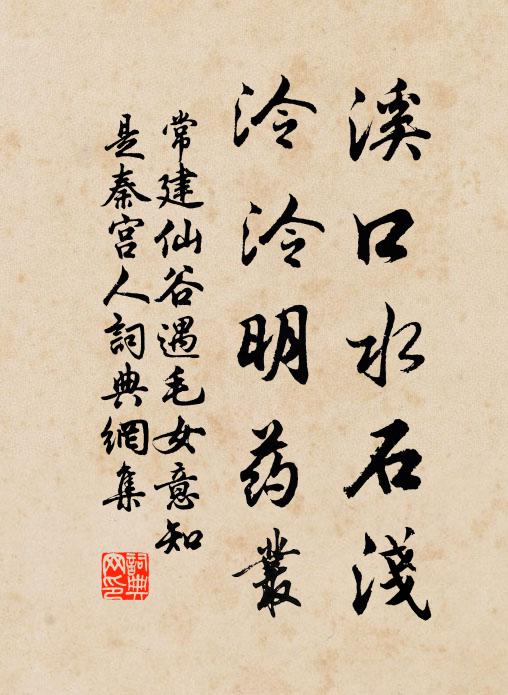 溪口水石淺
泠泠明药叢
常建仙谷遇毛女意知
是秦宮人詞典網集
詞典网印